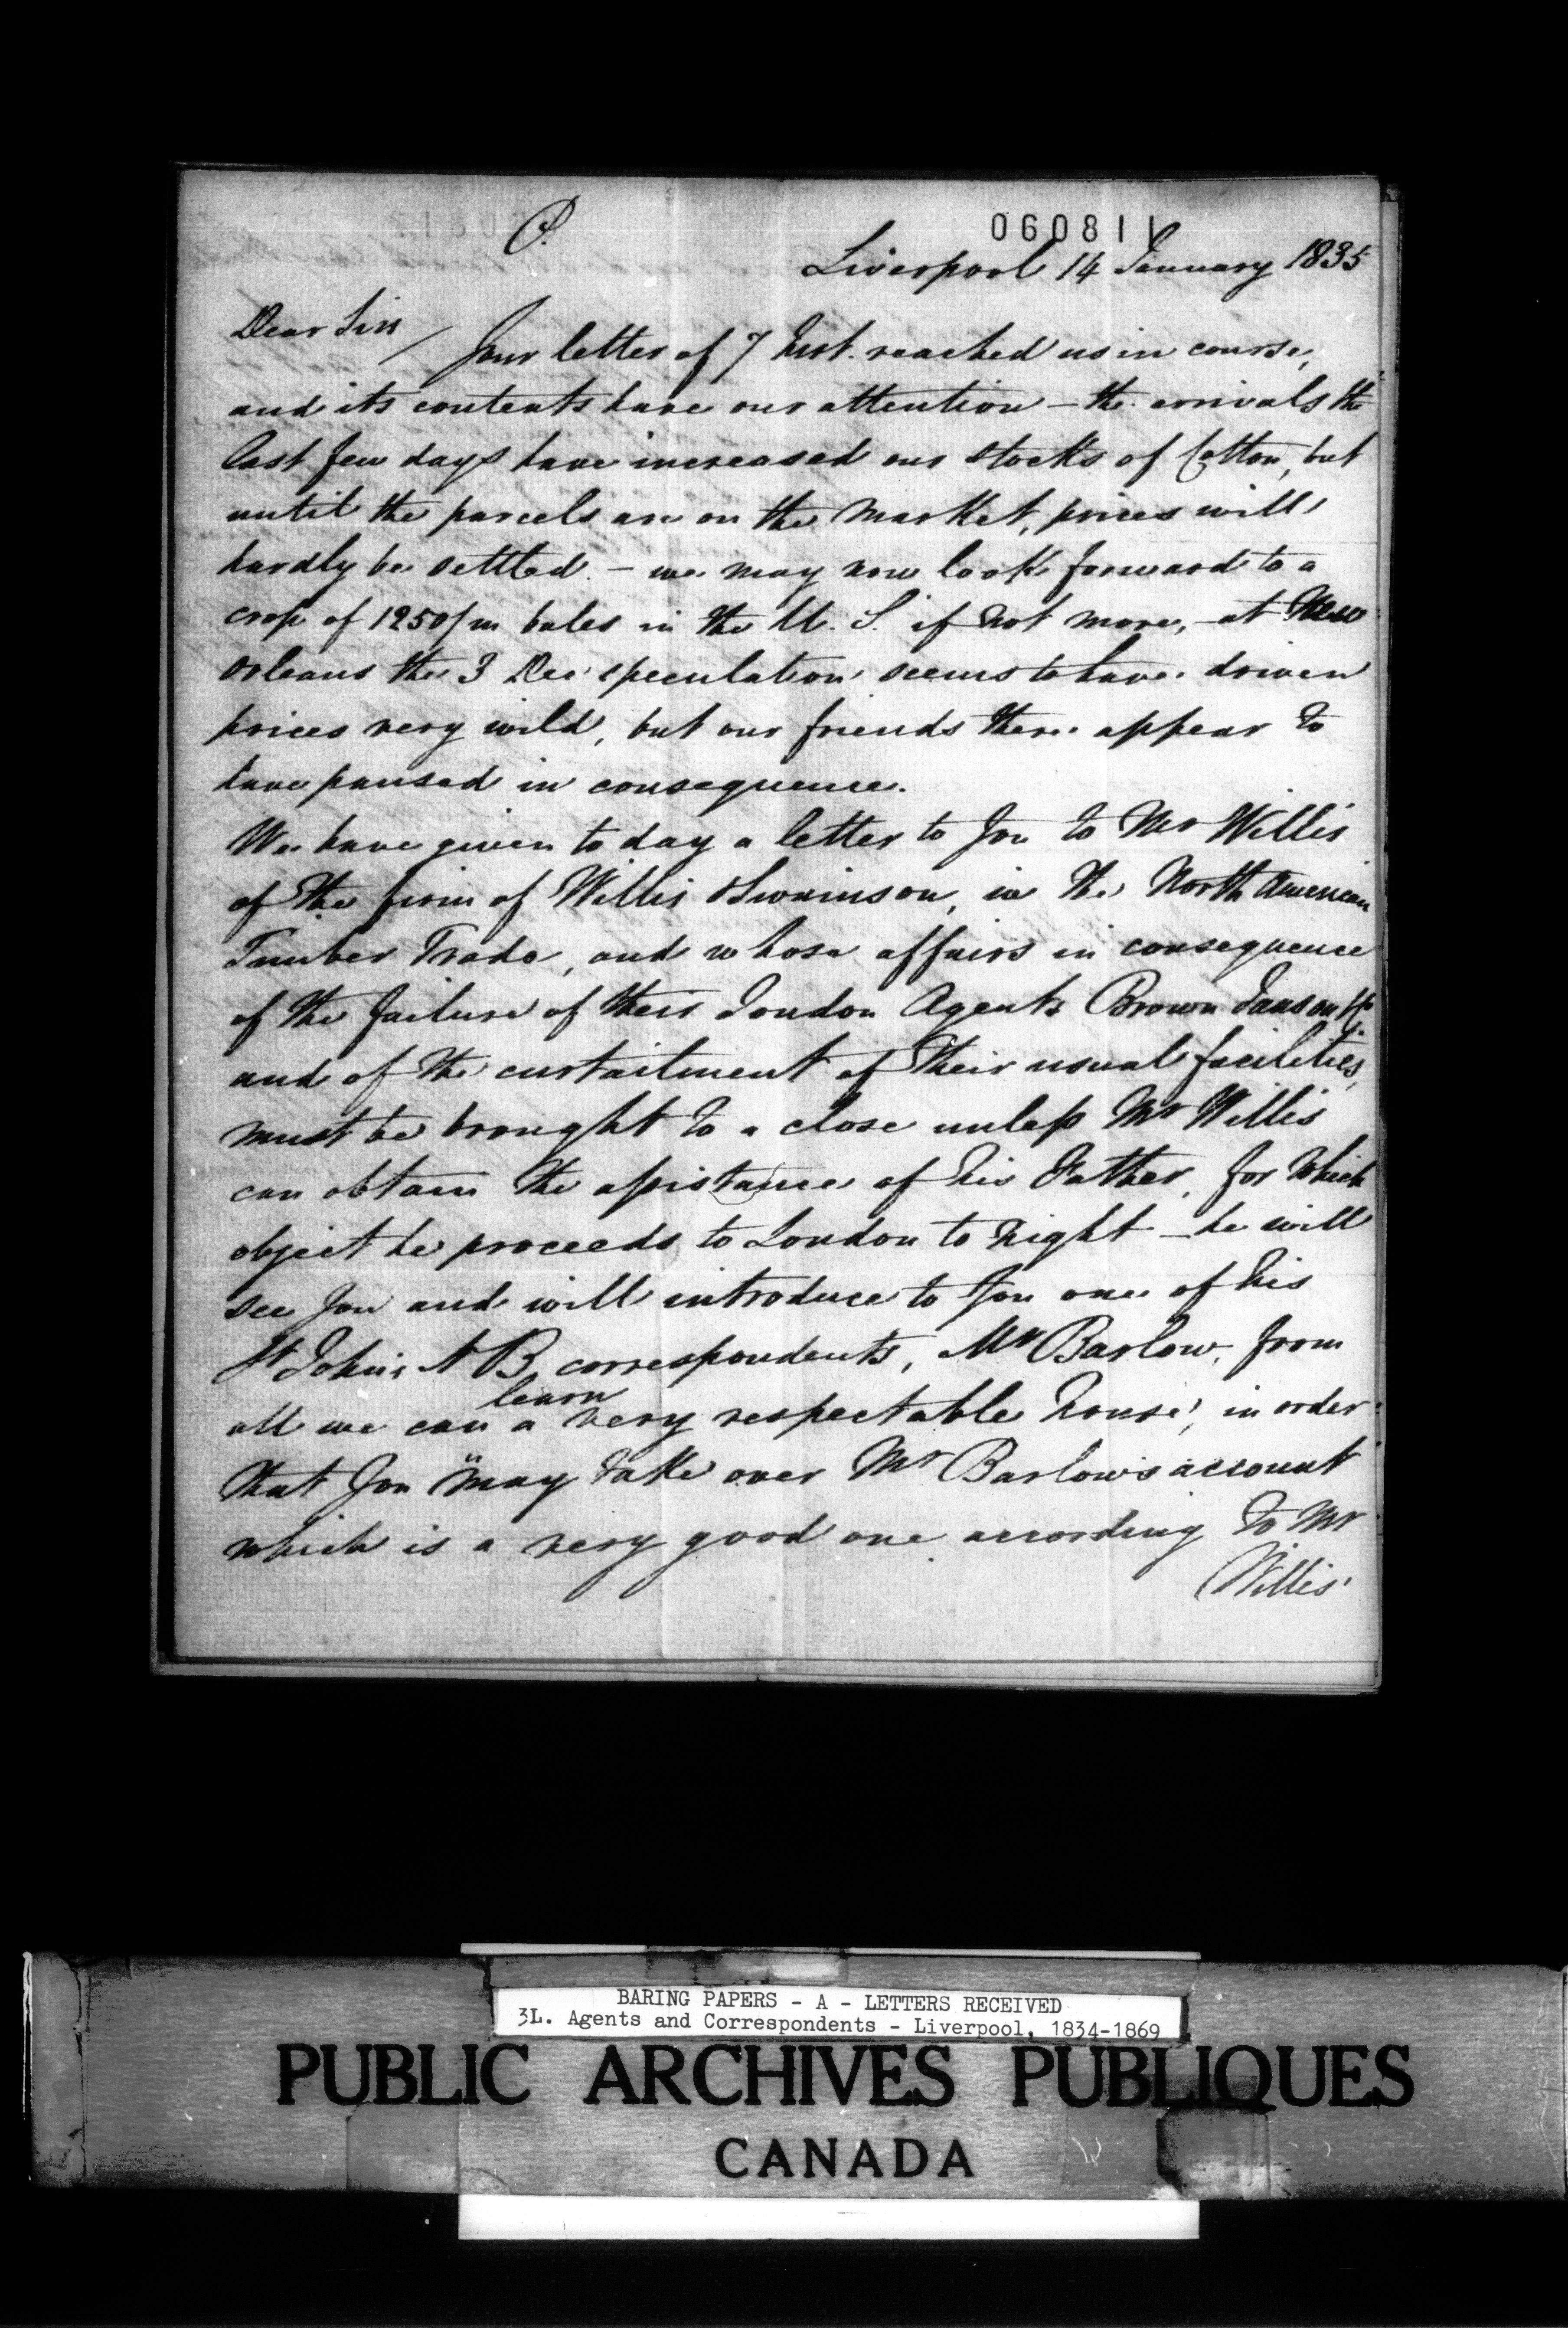 P.
060811
Liverpool 14 January 1835
Dear Sirs
Your letter of 7 Inst. reached us in course,
and its contents have our attention – the arrivals the
last few days have increased our stocks of Cotton, but
until the parcels are on the Market, prices will
hardly be settled. – we may now look forward to a
crop of 1250/m bales in the U. S. if not more, – at New
Orleans the 3 Dec speculation seems to have driven
prices very wild, but our friends there appear to
have paused in consequence.
We have given to day a letter to You to Mr Willis
of the firm of Willis & Swainson, in the North American
Timber Trade, and whose affairs in consequence
of the failure of their London Agents Brown Janson & Co
and of the curtailment of their usual facilities,
must be brought to a close unless Mr Willis
can obtain the assistance of his Father, for which
object he proceeds to London to night – he will
see You and will introduce to You one of his
St John's N B correspondents, Mr Barlow, from
all we can learn a very respectable house, in order
that You may take over Mr Barlow's account
which is a very good one according to Mr
Willis
BARING PAPERS - A - LETTERS RECEIVED
3L. Agents and Correspondents - Liverpool, 1834-1869
PUBLIC ARCHIVES PUBLIQUES
CANADA